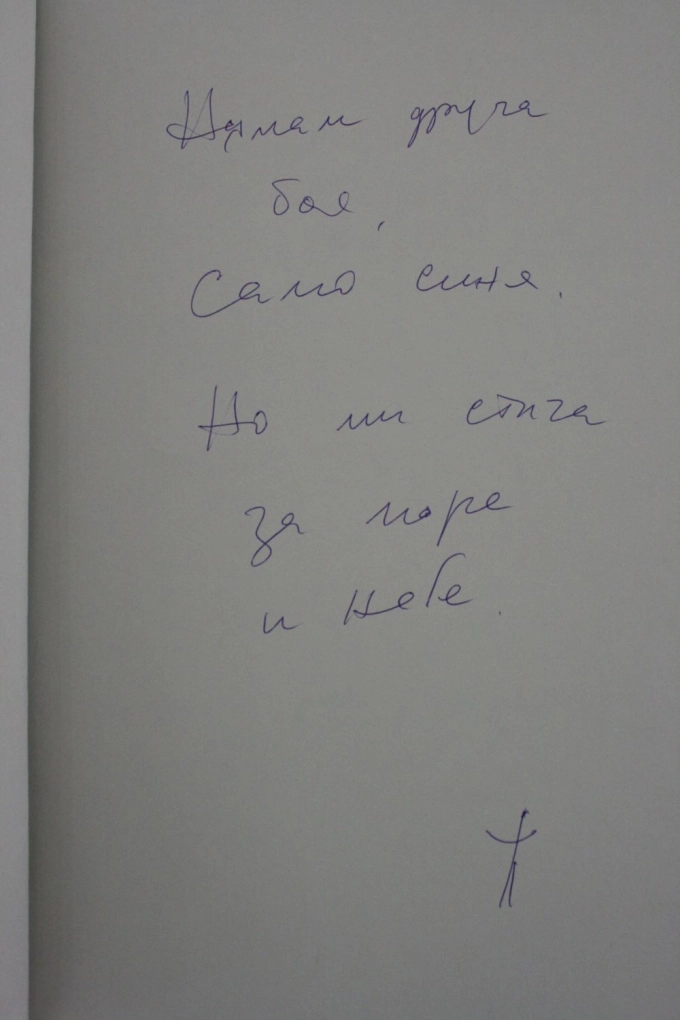 Нямам друга
боя,
Само синя.
Но ми стига
за море
и небе.